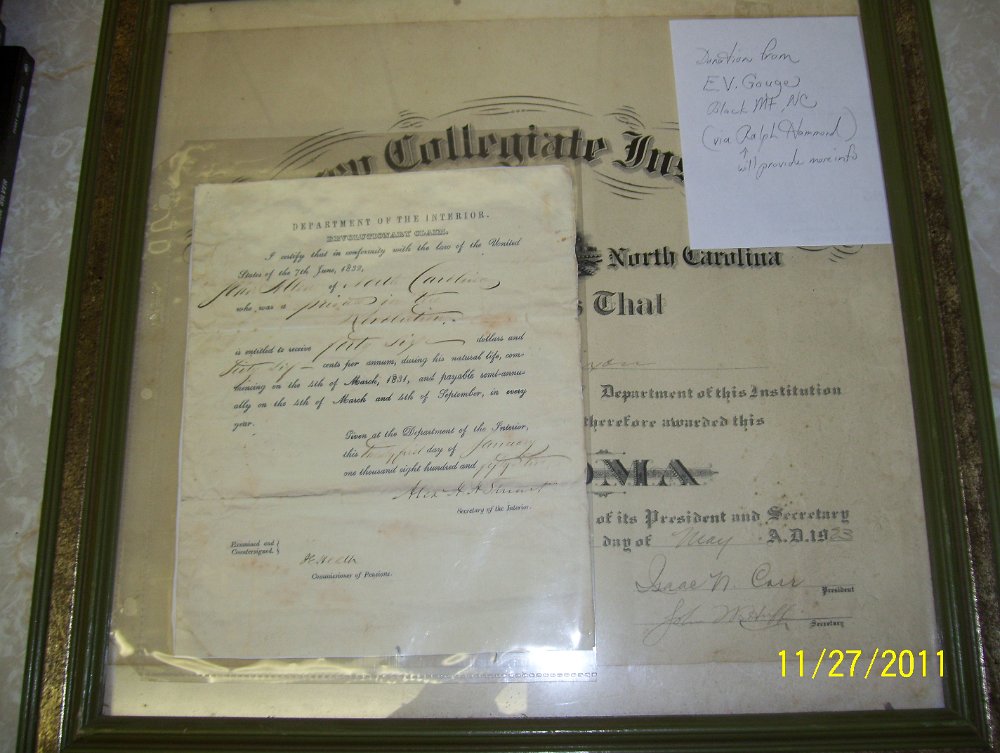 Donation from
E.V. Gouge
Black Mt. NC
(via Ralph Hammond)
↑
will provide more info
Collegiate Ins
North Carolina
s That
Department of this Institution
therefore awarded this
OMA
of its President and Secretary
day of May A.D. 1923
Isaac N. Carr
President
Secretary
DEPARTMENT OF THE INTERIOR.
REVOLUTIONARY CLAIM.
I certify that in conformity with the law of the United
States of the 7th June, 1832,
of North Carolina
who was a private in the
Revolution
is entitled to receive fifty six dollars and
fifty six cents per annum, during his natural life, com-
mencing on the 4th of March, 1831, and payable semi-annu-
ally on the 4th of March and 4th of September, in every
year.
Given at the Department of the Interior,
this day of January
one thousand eight hundred and
Alex. H. H. Stuart
Secretary of the Interior.
Examined and
Countersigned.
Heath
Commissioner of Pensions.
11/27/2011